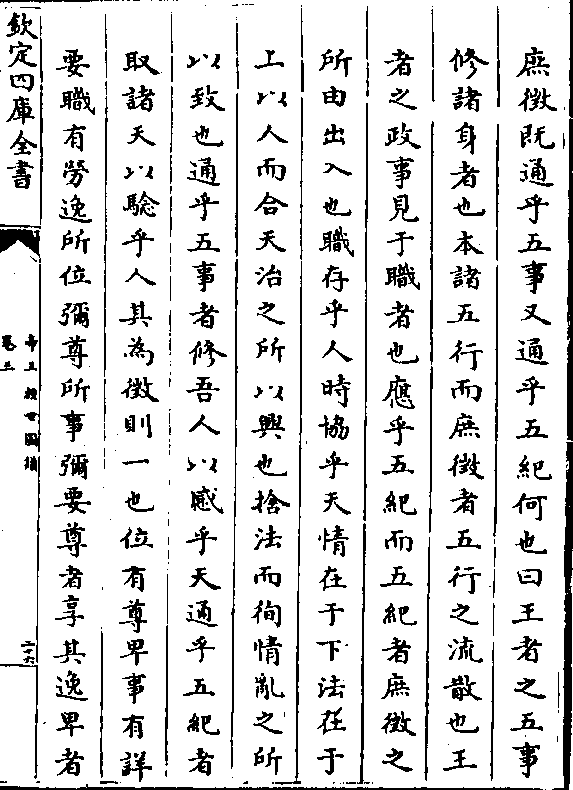 庶徴既通乎五事又通乎五紀何也曰王者之五事
修諸身者也本諸五行而庶徴者五行之流散也王
者之政事見于職者也應乎五紀而五紀者庶徴之
所由出入也職存乎人時協乎天情在于下法在于
上以人而合天治之所以興也捨法而徇情亂之所
以致也通乎五事者修吾人以感乎天通乎五紀者
取諸天以驗乎人其為徴則一也位有尊卑事有詳
要職有勞逸所位彌尊所事彌要尊者享其逸卑者
欽定四庫全書
帝王經世圖譜
卷三
二十六